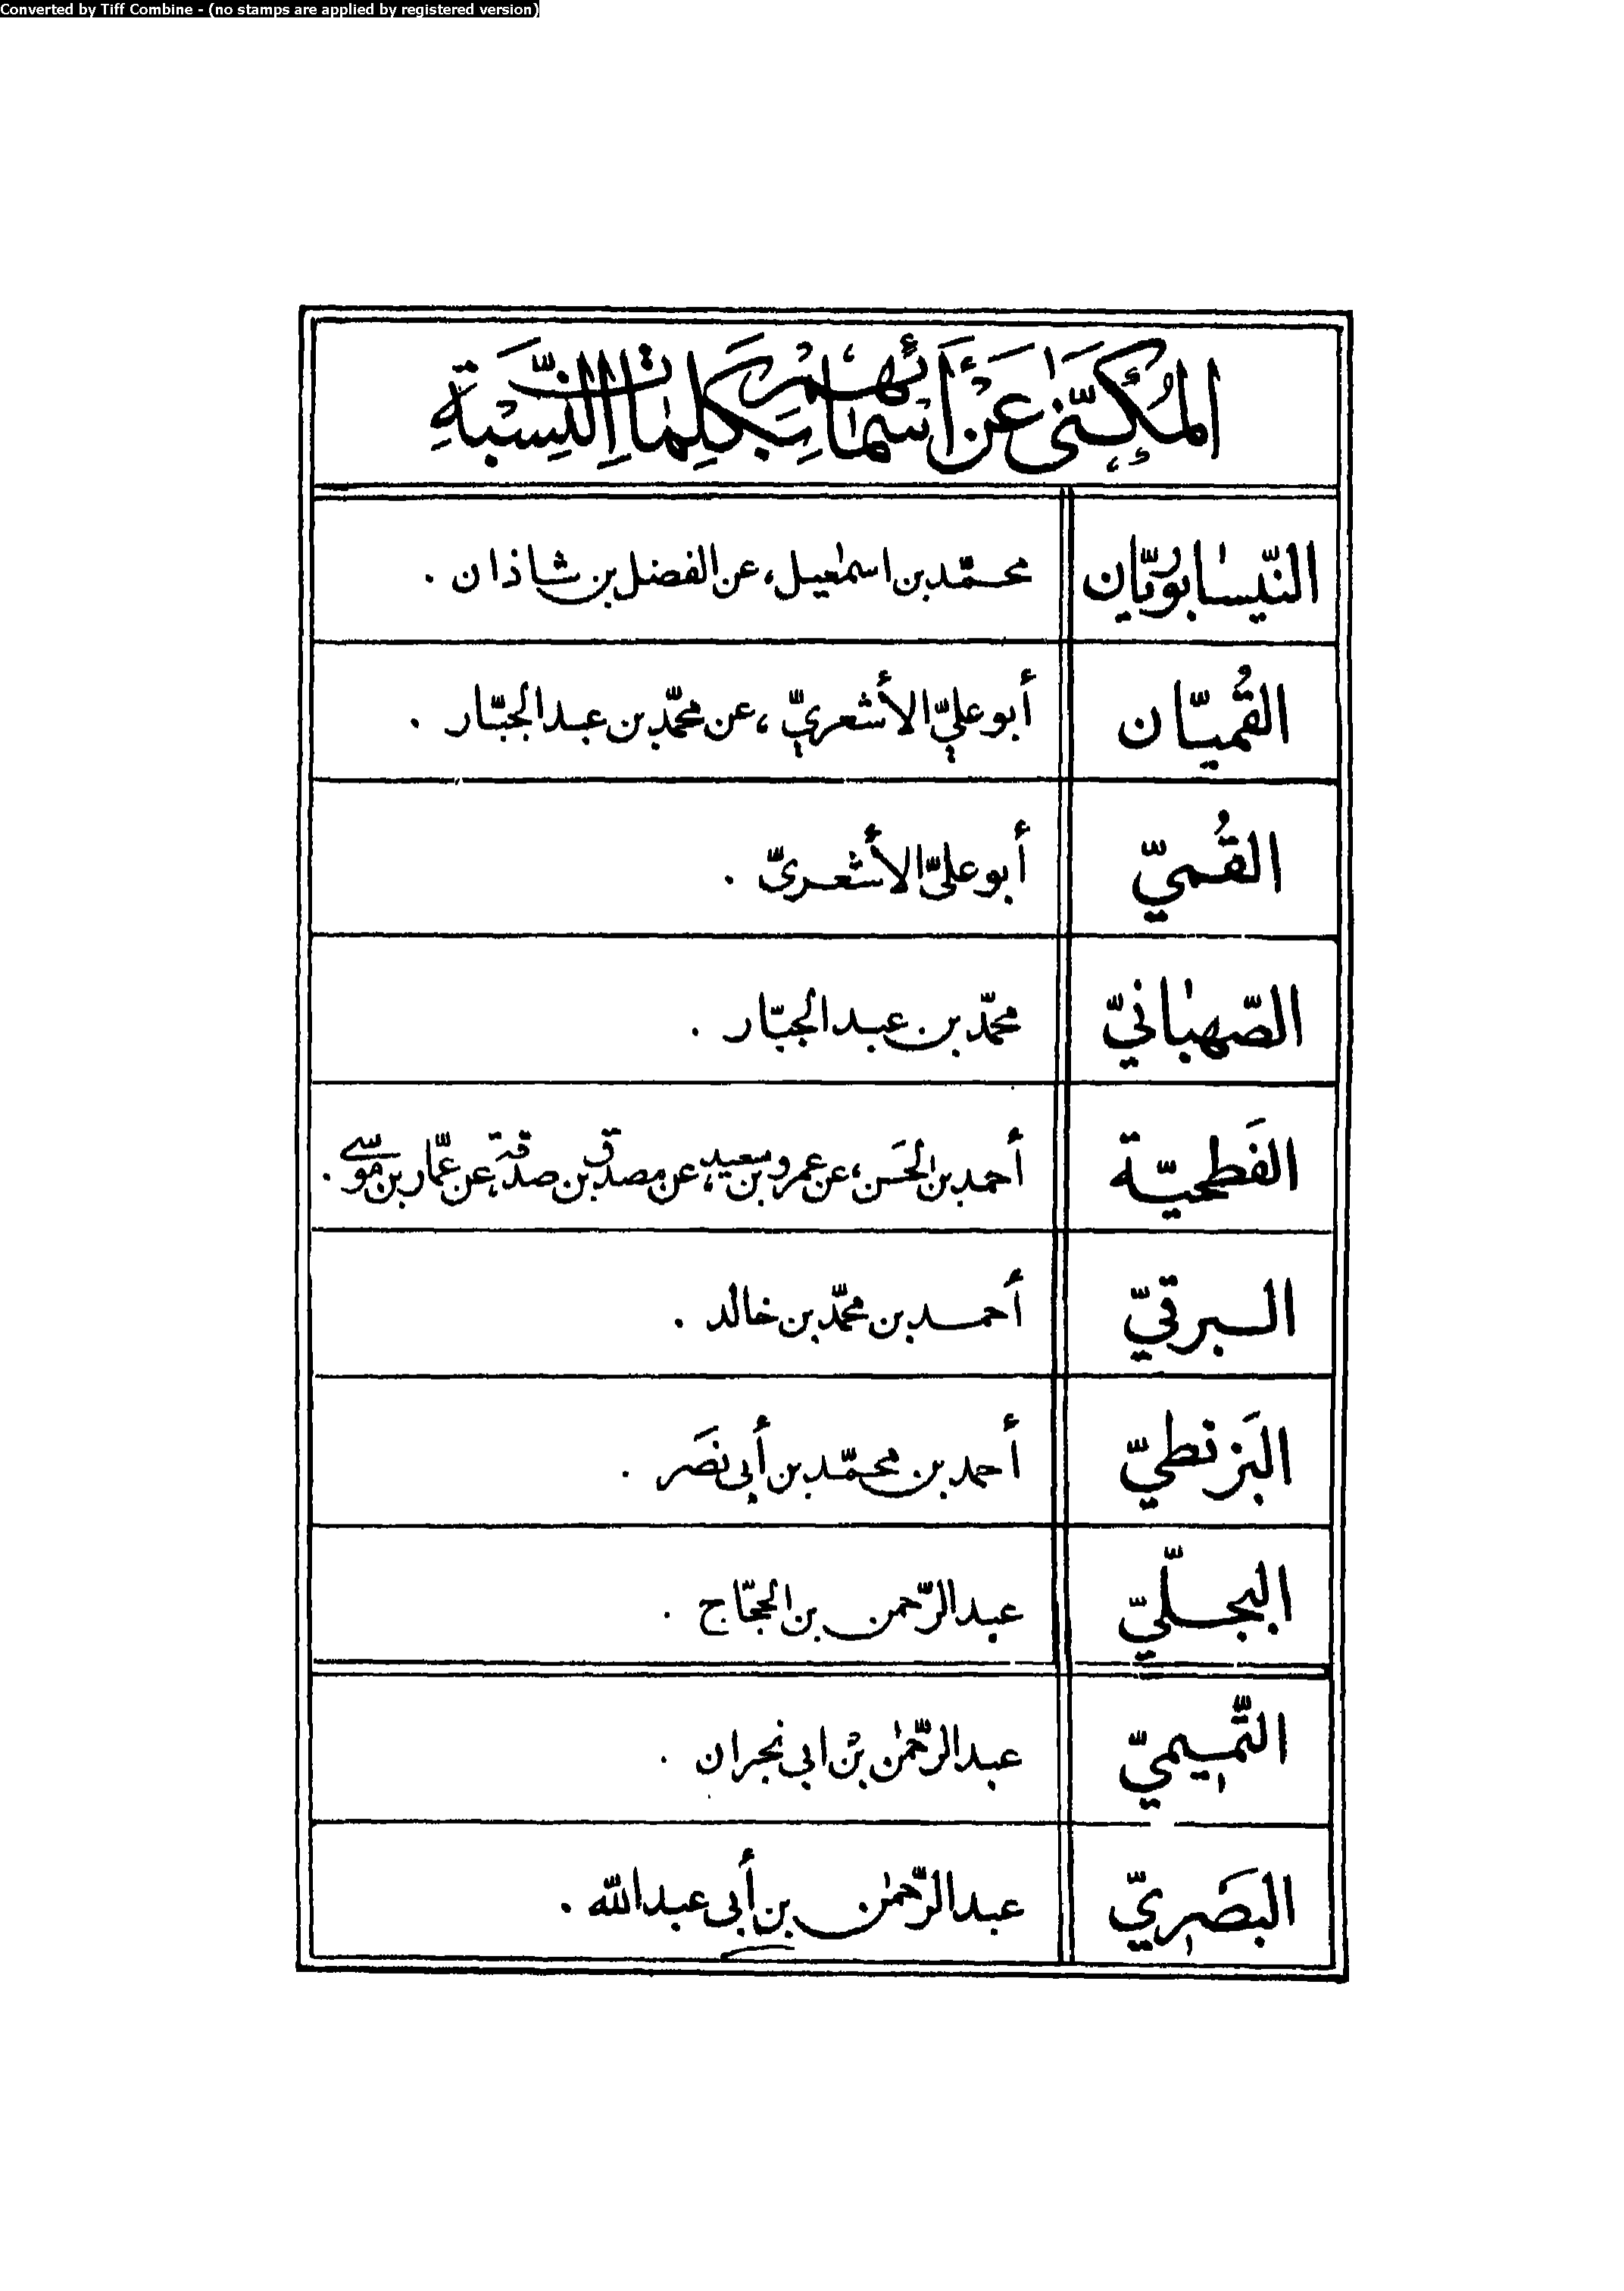 Converted by Tiff Combine - (no stamps are applied by registered version)
المُكَنّىٰ عَنْ أَسْمٰائِهِمْ بِكَلِمٰاتِ النِّسْبَةِ
النّيسٰابوُريّان محمّد بن اسمٰعيل، عن الفضل بن شاذان .
القُميّان أبو عليّ الأشعريّ، عن محمّد بن عبد الجبّار .
القُميّ أبو عليّ الأشعريّ .
الصّهبٰانيّ محمّد بن عبد الجبّار .
الفَطحيّة أحمد بن الحَسن، عن عمرو بن سعيد، عن مصدق بن صدقة، عن عمّار بن موسى .
البرقيّ أحمد بن محمّد بن خالد .
البَزنطيّ أحمد بن محمّد بن أبي نصَر .
البجلّيّ عبد الرّحمن بن الحجّاج .
التّميميّ عبد الرّحمٰن بْن ابي نجران .
البَصريّ عبد الرّحمٰن بن أبي عبد الله .